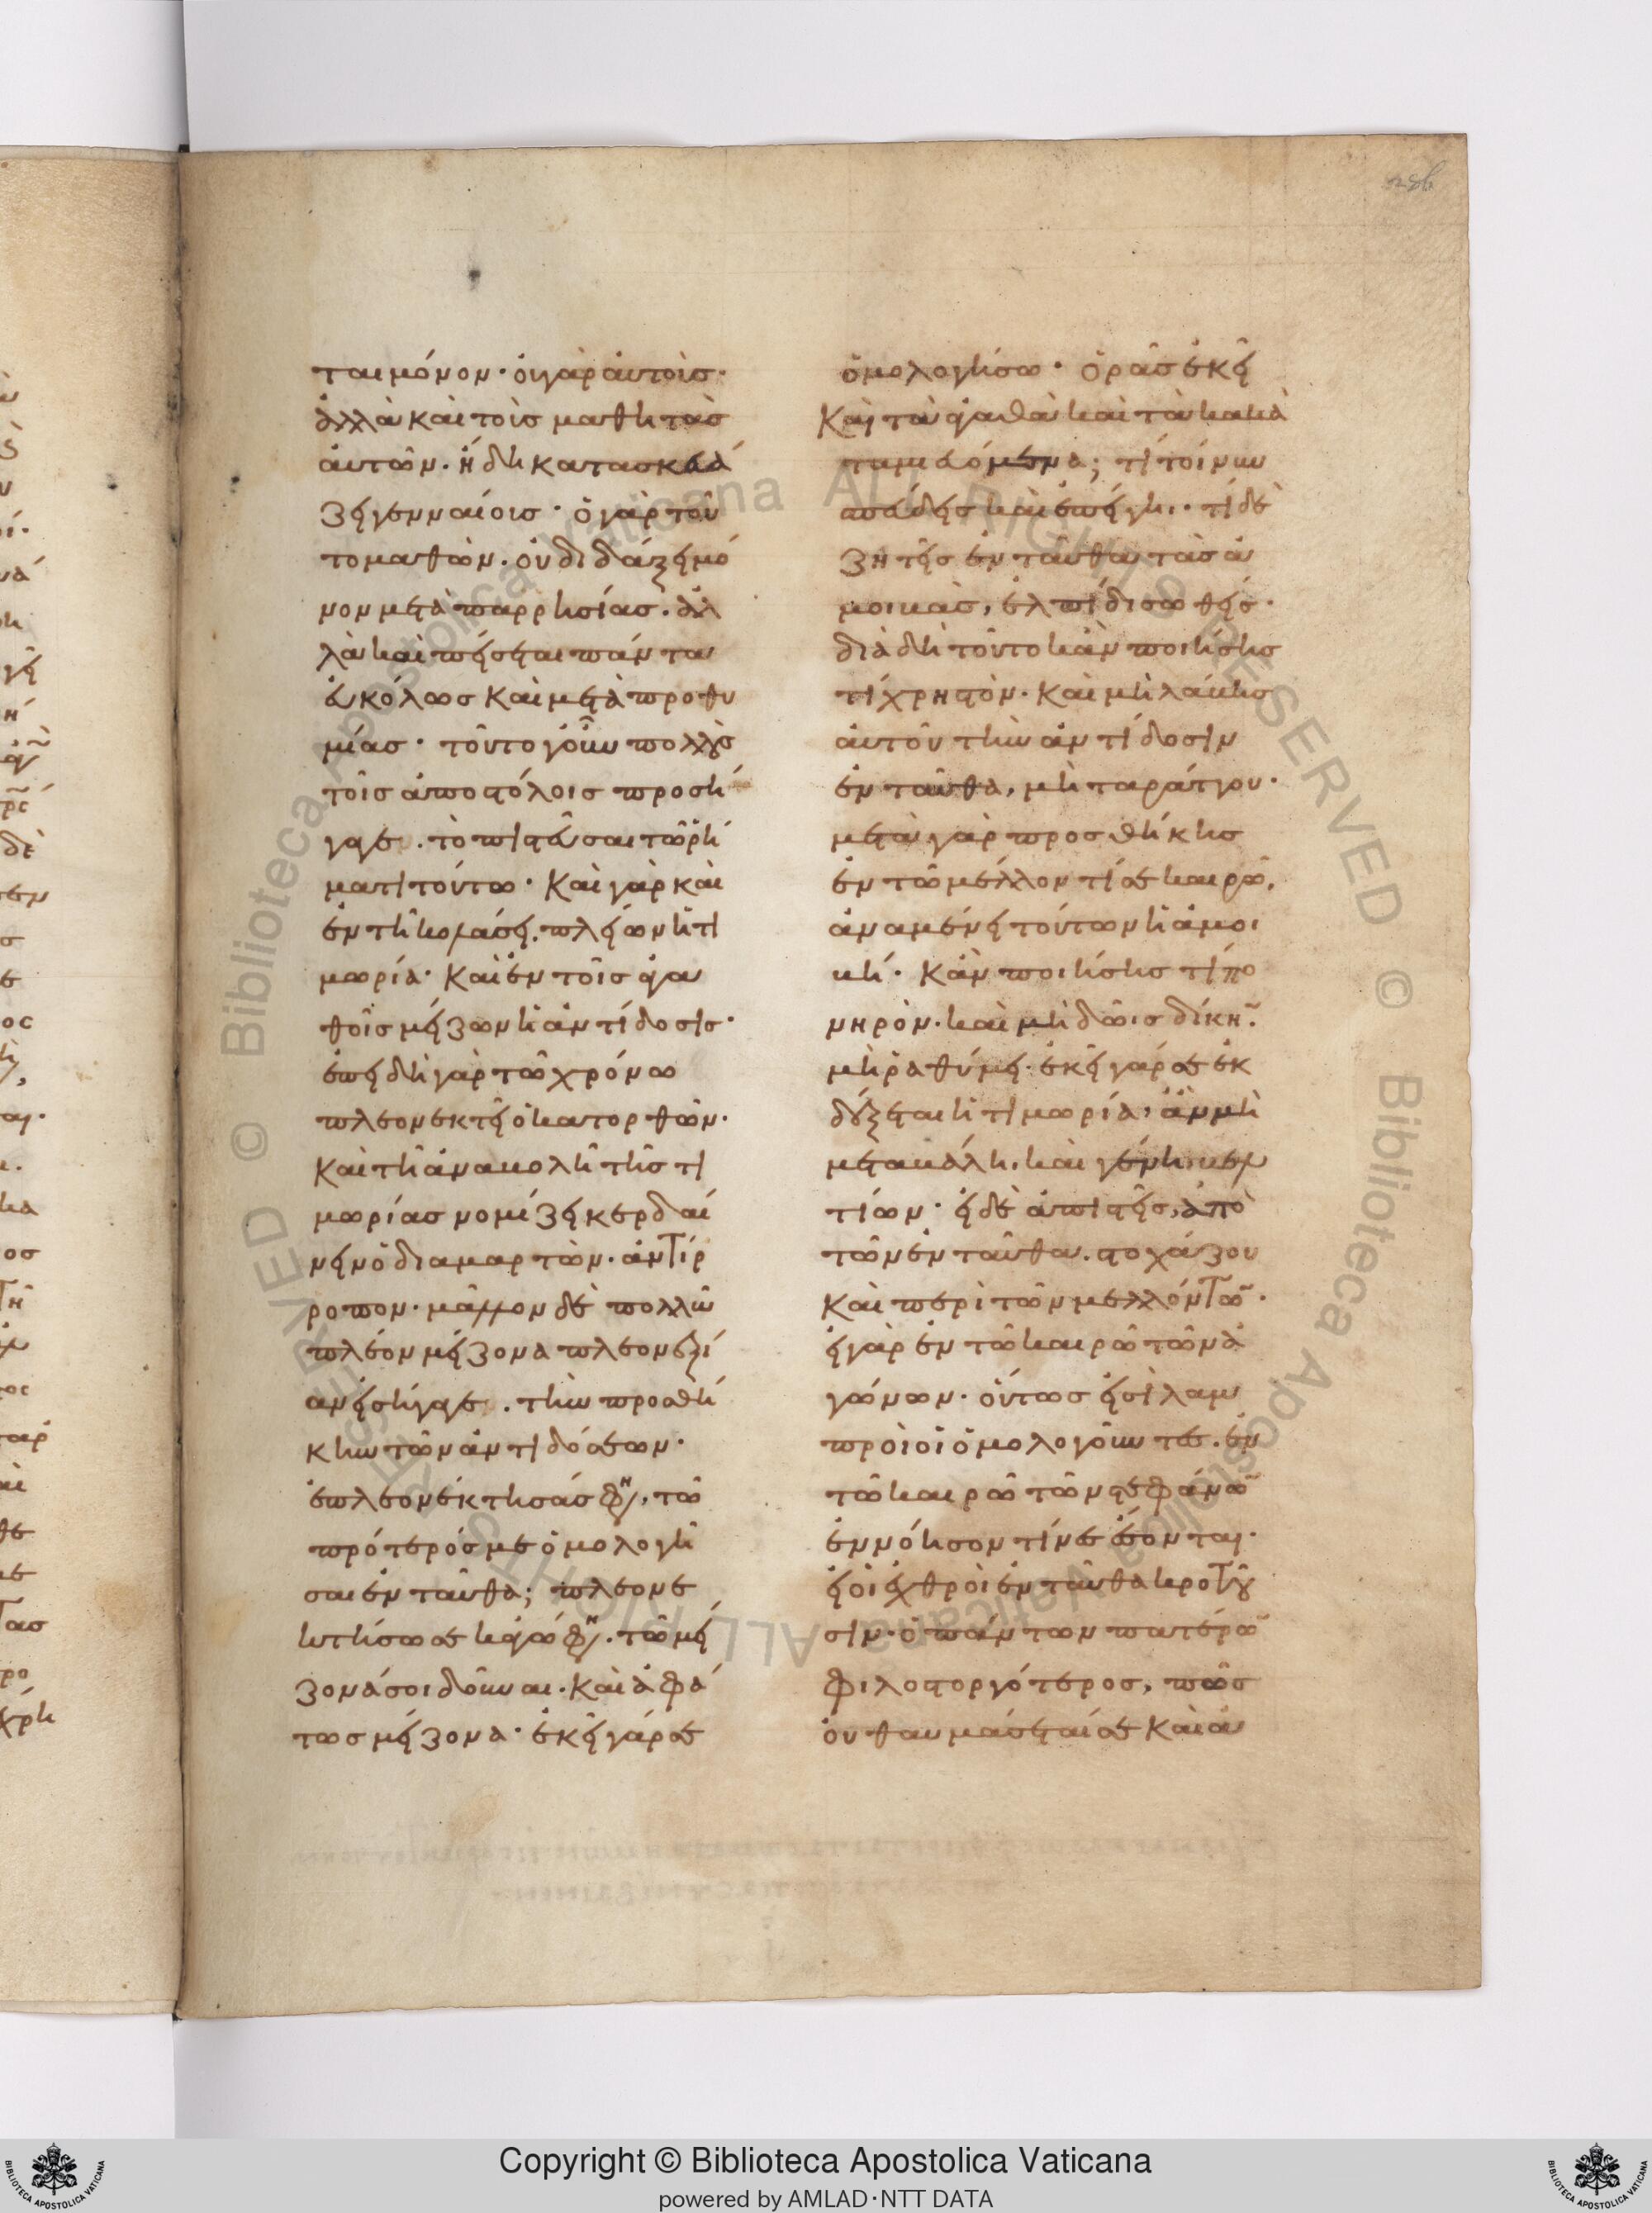 286
ται μόνον· οὐ γὰρ αὐτοὺς·
ἀλλὰ καὶ τοὺς μαθητὰς
αὐτῶν. ἤδη κατασκευά
ζει γενναίους· ὁ γὰρ τοῦ
το μαθὼν. οὐ διδάξει μό
νον μετὰ παρρησίας. ἀλ
λὰ καὶ πείσεται πάντα
εὐκόλως καὶ μετὰ προθυ
μίας· τοῦτο γοῦν πολλοὺς
τοῖς ἀποστόλοις προσή
γαγε. τὸ πιστεῦσαι τῶ ῥή
ματι τούτω· καὶ γὰρ καὶ
ἐν τῆ κολάσει. πλείων ἡ τι
μωρία· καὶ ἐν τοῖς ἀγα
θοῖς μείζων ἡ ἀντίδοσις·
ἐπειδὴ γὰρ τῶ χρόνω
πλεονεκτεῖ ὁ κατορθῶν·
καὶ τῆ ἀναβολῆ τῆς τι
μωρίας νομίζει κερδαί
νειν ὁ διαμαρτὼν· ἀντίρ
ροπον· μᾶλλον δὲ πολλῶ
πλέον μείζονα πλεονεξί
αν εἰσήγαγε. τὴν προσθή
κην τῶν ἀντιδόσεων·
ἐπλεονέκτησάς φη(σι), τῶ
πρότερός με ὁμολογῆ
σαι ἐνταῦθα; πλεονε
κτήσω σε κἀγώ φη(σι). τῶ μεί
ζονά σοι δοῦναι· καὶ ἀφά
τως μείζονα· ἐκεῖ γάρ σε
ὁμολογήσω· ὁρᾶς ἐκεῖ
καὶ τὰ ἀγαθὰ καὶ τὰ κακὰ
ταμιευόμενα; τί τοίνυν
σπεύδεις καὶ ἐπείγη· τί δὲ
ζητεῖς ἐνταῦθα τὰς ἀ
μοιβὰς, ἐλπίδι σωθείς·
διὰ δὴ τοῦτο κἂν ποιήσης
τί χρηστὸν· καὶ μὴ λάβης
αὐτοῦ τὴν ἀντίδοσιν
ἐνταῦθα, μὴ ταράττου·
μετὰ γὰρ προσθήκης
ἐν τῶ μέλλοντί σε καιρῶ,
ἀναμένει τούτων ἡ ἀμοι
βή· κἂν ποιήσης τί πο
νηρὸν· καὶ μὴ δῶις δίκην·
μὴ ῥαθύμει· ἐκεῖ γάρ σε ἐκ
δέξεται ἡ τιμωρία, ἂν μὴ
μεταβάλη· καὶ γένη βελ
τίων· εἰ δὲ ἀπιστεῖς, ἀπὸ
τῶν ἐνταῦθα. στοχάζου
καὶ περὶ τῶν μελλόντων·
εἰ γὰρ ἐν τῶ καιρῶ τῶν ἀ
γώνων· οὕτως εἰσὶ λαμ
προὶ οἱ ὁμολογοῦντες. ἐν
τῶ καιρῶ τῶν στεφάνων
ἐννόησον τίνες ἔσονται·
εἰ οἱ ἐχθροὶ ἐνταῦθα κροτοῦ
σιν· ὁ πάντων πατέρων
φιλοστοργότερος, πῶς
οὐ θαυμάσεταί σε καὶ ἀ
Copyright © Biblioteca Apostolica Vaticana
powered by AMLAD·NTT DATA